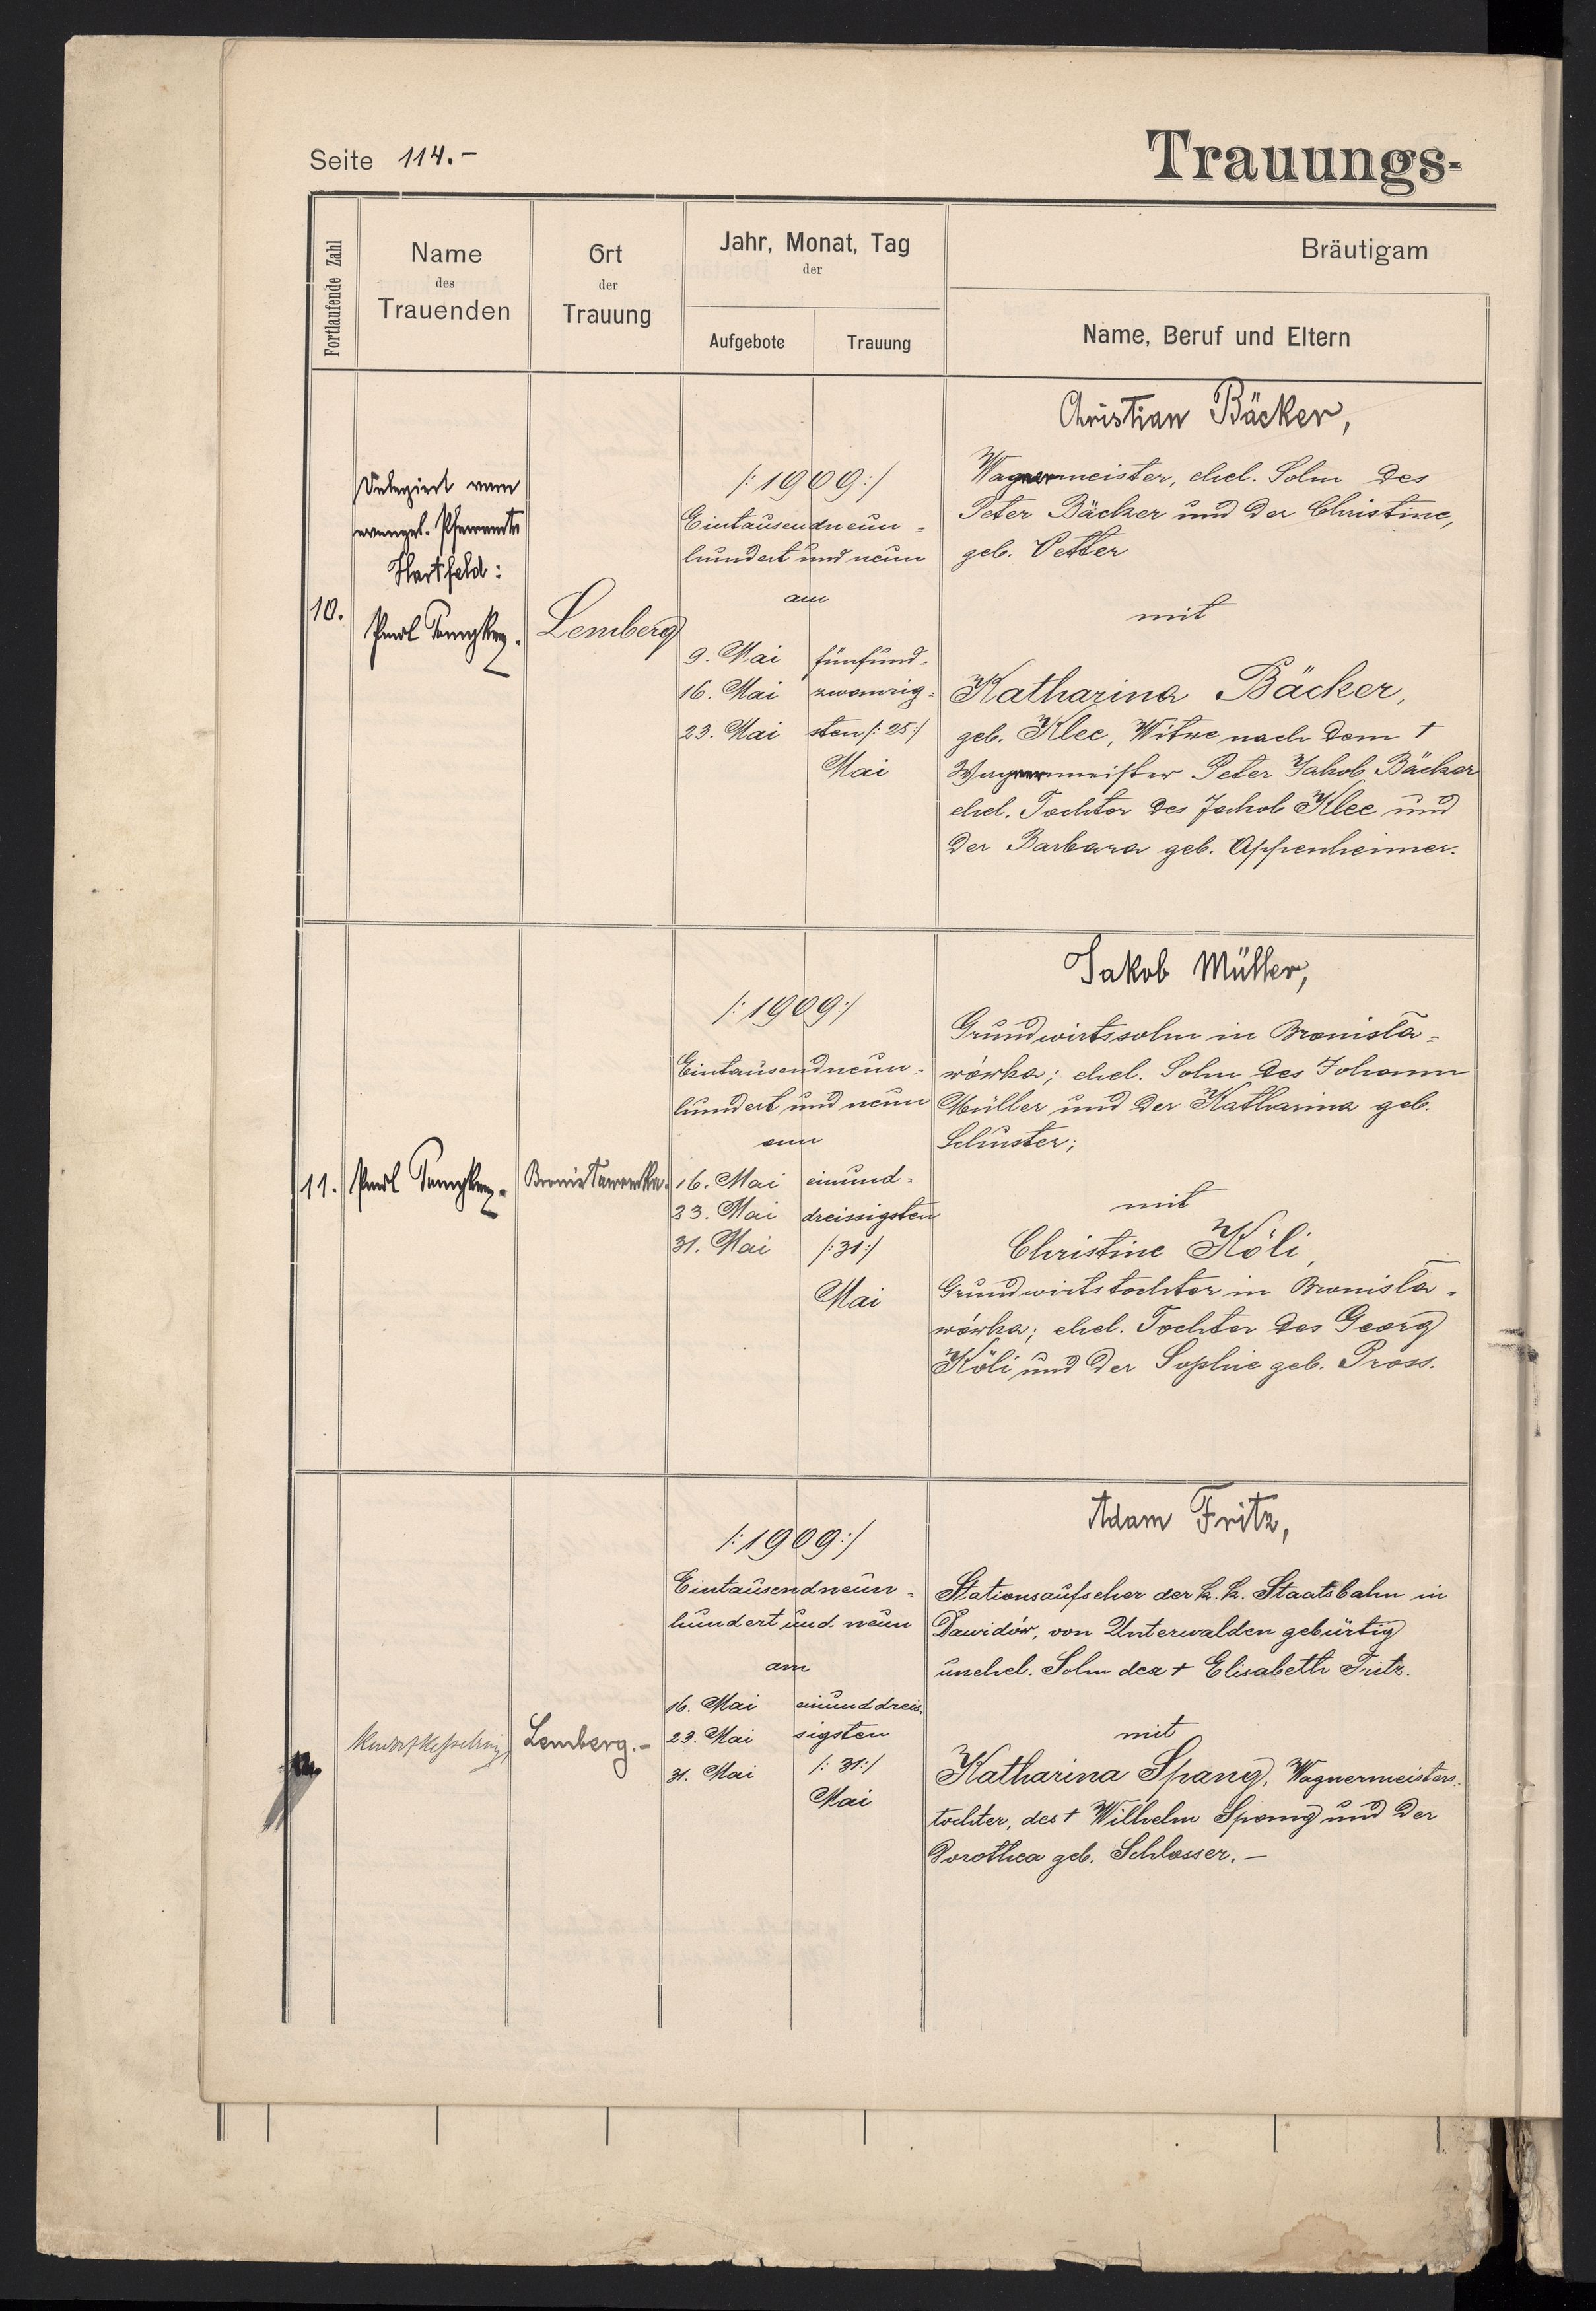 Seite 114.-
Trauungs-
Fortlaufende Zahl
Name
des
Trauenden
Ort
der
Trauung
Jahr, Monat, Tag
der
Aufgebote
Trauung
Bräutigam
Name, Beruf und Eltern
10.
Delegiert vom
evangel. Pfarramte
Hartfeld:
Lemberg
/:1909:/
Eintausendneun-
hundert und neun
am
9. Mai
16. Mai
23. Mai
fünfund-
zwanzig-
sten /:25:/
Mai
Christian Bäcker,
Wagnermeister, ehel. Sohn des
Peter Bäcker und der Christine,
geb. Vetter
mit
Katharina Bäcker,
geb. Klee, Witwe nach dem †
Wagnermeister Peter Jakob Bäcker
ehel. Tochter des Jakob Klee und
der Barbara geb. Appenheimer.
11.
Bronisławówka.
/:1909:/
Eintausendneun-
hundert und neun
am
16. Mai
23. Mai
31. Mai
einund-
dreissigsten
/:31:/
Mai
Jakob Müller,
Grundwirtssohn in Bronisła-
wówka; ehel. Sohn des Johann
Müller und der Katharina geb.
Schuster;
mit
Christine Köli,
Grundwirtstochter in Bronisła-
wówka; ehel. Tochter des Georg
Köli und der Sophie geb. Pross.
12.
Lemberg.-
/:1909:/
Eintausendneun-
hundert und neun
am
16. Mai
23. Mai
31. Mai
einunddreis-
sigsten
/:31:/
Mai
Adam Fritz,
Stationsaufseher der k. k. Staatsbahn in
Dawidów, von Unterwalden gebürtig
unehel. Sohn der † Elisabeth Fritz.
mit
Katharina Spang, Wagnermeisters-
tochter, des † Wilhelm Spang und der
Dorothea geb. Schlosser.-